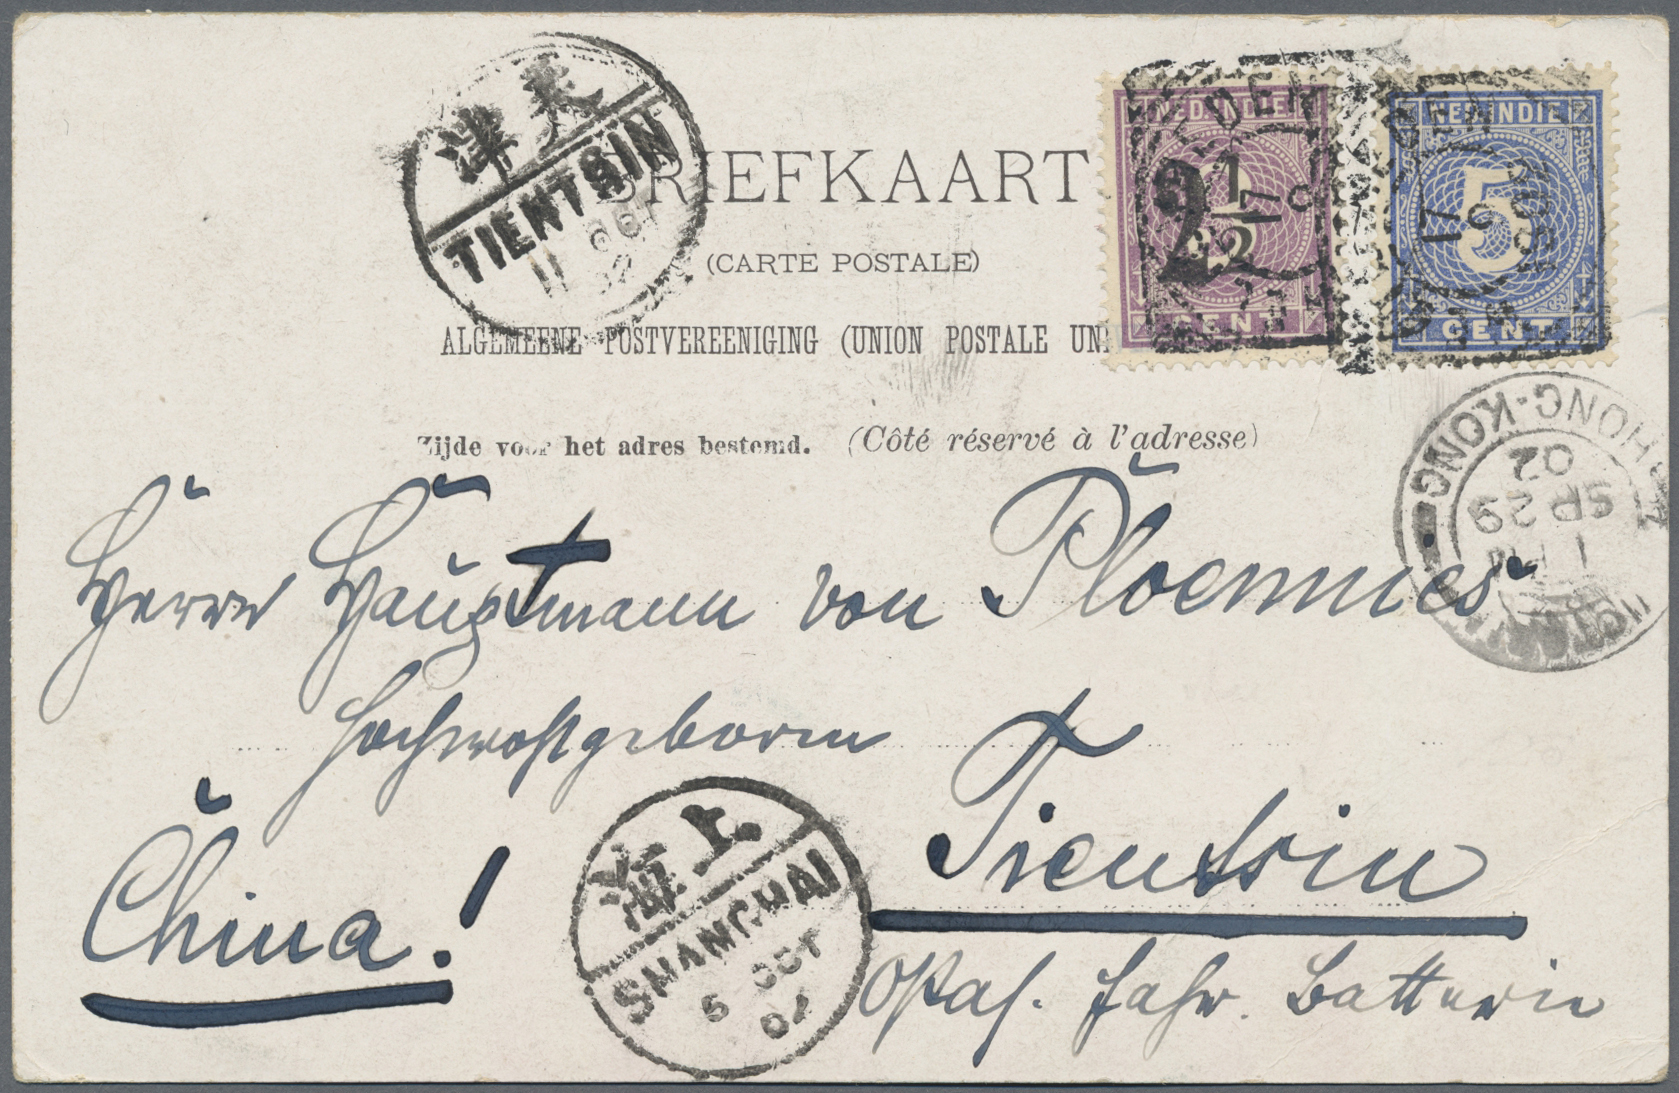 天津
TIENTSIN
11 OCT 02
BRIEFKAART
(CARTE POSTALE)
ALGEMEENE POSTVEREENIGING (UNION POSTALE UNI
Zijde voor het adres bestemd. (Côté réservé à l'adresse)
NED. INDIE
2 1/2
CENT
NED. INDIE
5
CENT
17 9 1902
HONG-KONG
1 PM
SP 29
02
Herrn Hauptmann von Ploennies
Hochwohlgeboren
Tientsin
China!
Ostas. Fahr. Batterie
上海
SHANGHAI
6 OCT
02